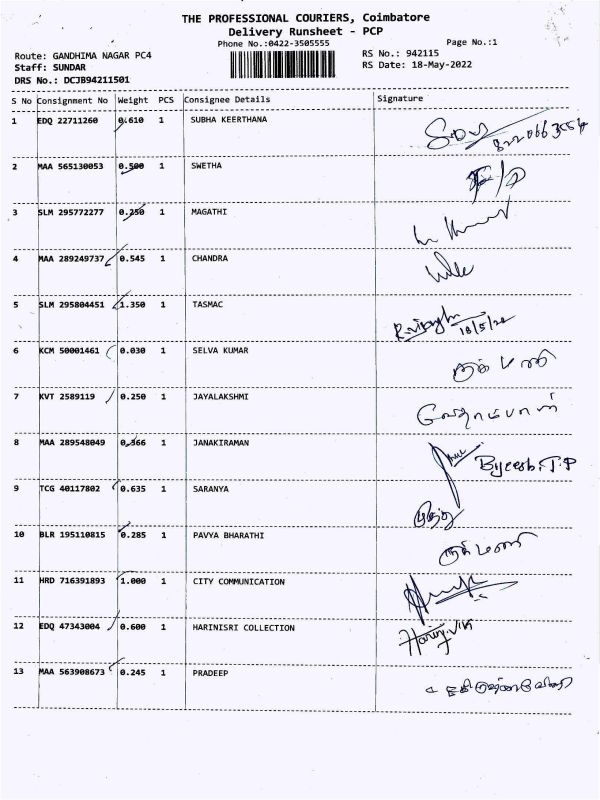 THE PROFESSIONAL COURIERS, Coimbatore
Delivery Runsheet - PCP
Phone No.:0422-3505555 Page No.:1
Route: GANDHIMA NAGAR PC4 RS No.: 942115
Staff: SUNDAR RS Date: 18-May-2022
DRS No.: DCJB94211501
S No Consignment No Weight PCS Consignee Details Signature
1 EDQ 22711260 0.610 1 SUBHA KEERTHANA
2 MAA 565130053 0.500 1 SWETHA
3 SLM 295772277 0.250 1 MAGATHI
4 MAA 289249737 0.545 1 CHANDRA
5 SLM 295804451 1.350 1 TASMAC
18/5/22
6 KCM 50001461 0.030 1 SELVA KUMAR
7 KVT 2589119 0.250 1 JAYALAKSHMI
8 MAA 289548049 0.366 1 JANAKIRAMAN
9 TCG 40117802 0.635 1 SARANYA
10 BLR 195110815 0.285 1 PAVYA BHARATHI
11 HRD 716391893 1.000 1 CITY COMMUNICATION
12 EDQ 47343004 0.600 1 HARINISRI COLLECTION
13 MAA 563908673 0.245 1 PRADEEP